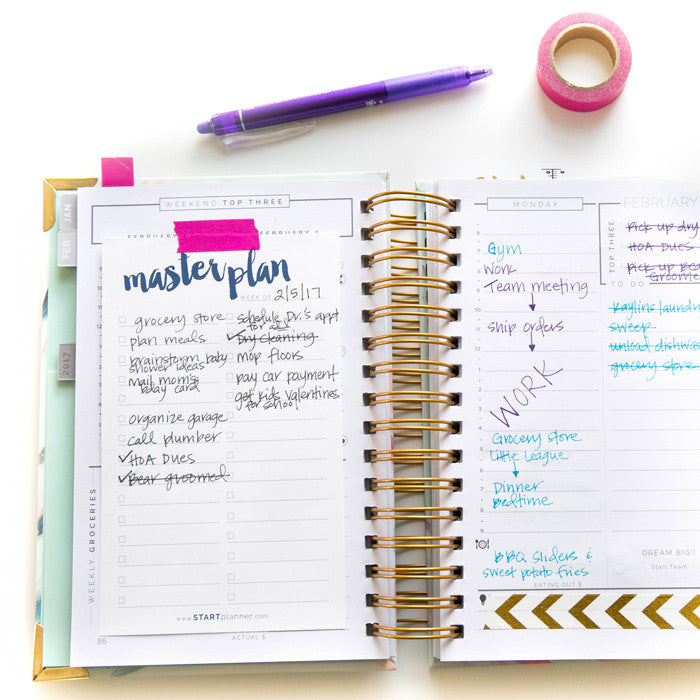 JAN
FEB
2017
WEEKEND TOP THREE
FEBRUARY
master plan
WEEK OF 2/5/17
grocery store
plan meals
brainstorm baby
shower ideas
mail mom's
bday card
organize garage
call plumber
HOA DUES
Bear groomed
schedule Dr.'s appt
for
Dry cleaning
mop floors
pay car payment
get kids valentines
for school
www.STARTplanner.com
WEEKLY GROCERIES
86
ACTUAL $
MONDAY
Gym
Work
Team meeting
Ship orders
WORK
Grocery store
Little League
Dinner
Bedtime
BBQ Sliders &
sweet potato fries
EATING OUT $
FEBRUARY
TOP THREE
Pick up dry
HOA DUES
Pick up Bear
Groome
TO DO
Kaylins laundr
sweep
unload dishwas
grocery store
DREAM BIG!!
Start Team